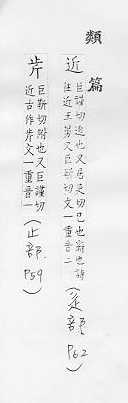 類篇
近
巨謹切迫也又居吏切已也辭也詩
往近王舅又巨靳切文一重音二(辵部 P62)
巨靳切附也又巨謹切
近古作文一重音一(止部 P59)